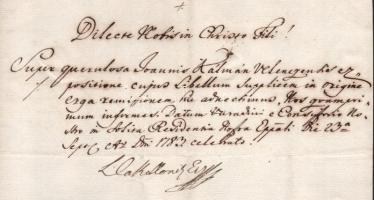 Dilecte Nobis in Christo Fili!
Super querulosa Joannis Kálmán Velenczensis ex-
positione, cujus Libellum Supplicem in origine
erga remissionem hic adnectimus, Nos
informet. Datum Varadini e Consistorio No-
stro in solita Residentia Nostra Eppali Die 23a
Sept. Ao Dni 1783 celebrato.